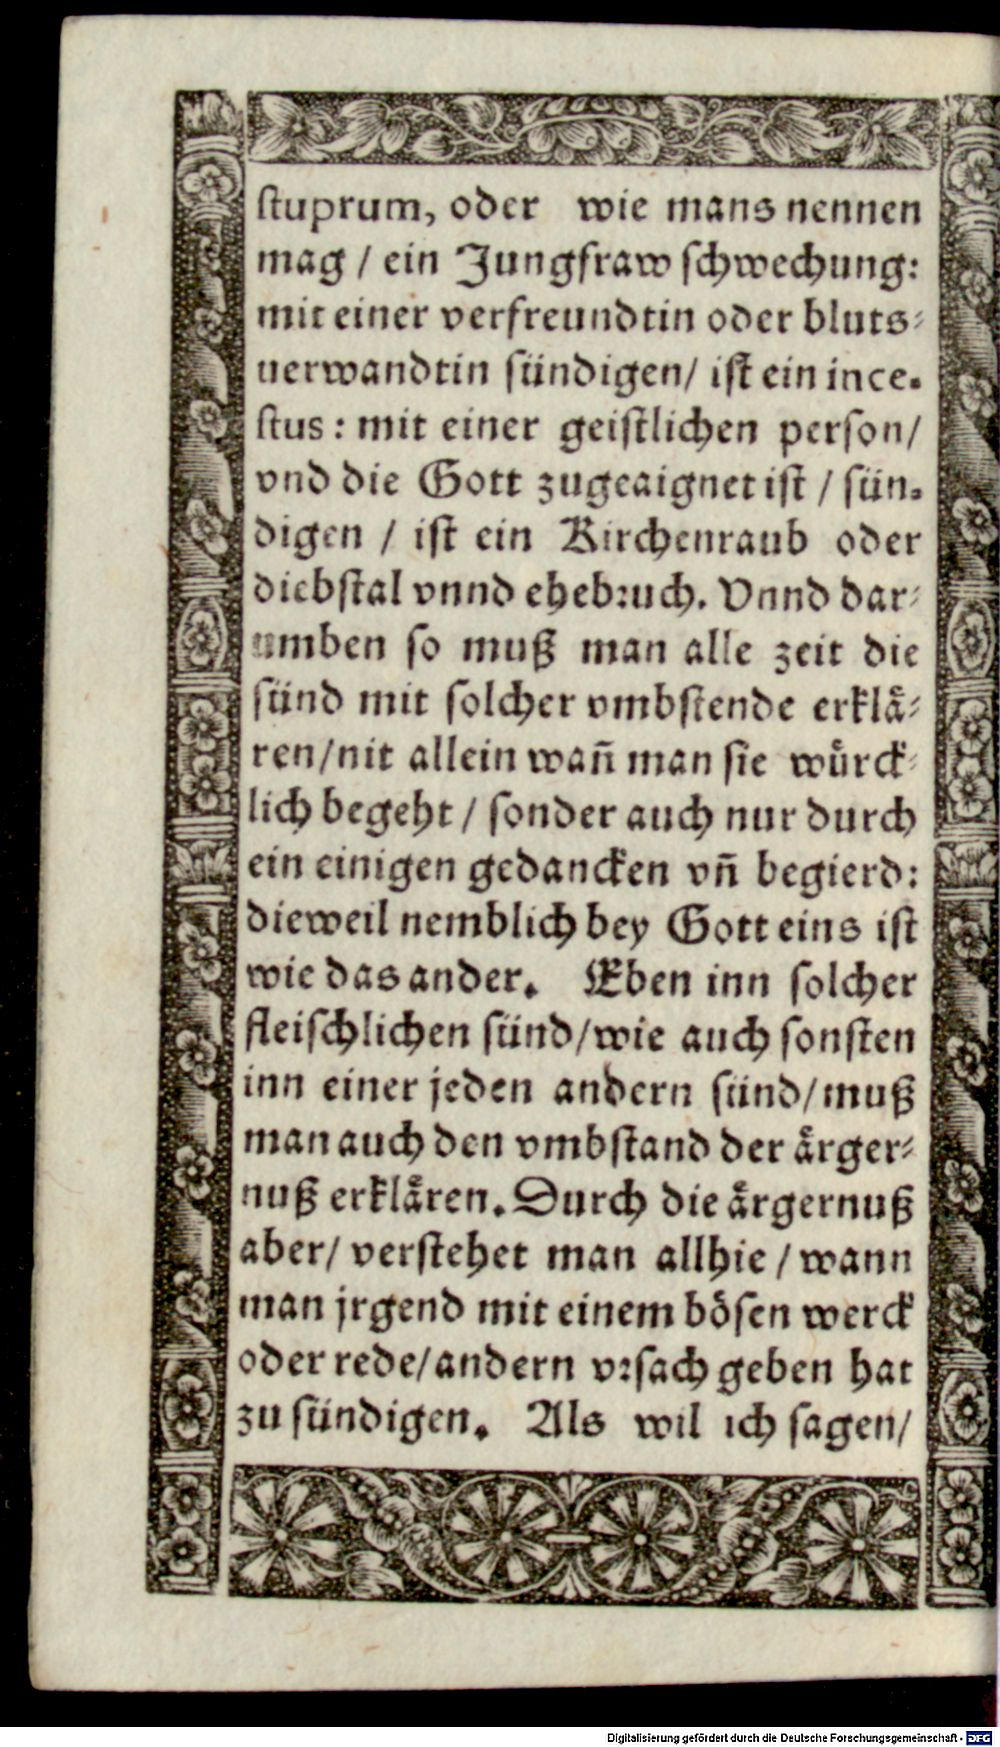 stuprum, oder wie mans nennen
mag / ein Jungfraw schwechung:
mit einer verfreundtin oder bluts⸗
uerwandtin sündigen/ ist ein ince⸗
stus: mit einer geistlichen person/
vnd die Gott zugeaignet ist / sün⸗
digen / ist ein Kirchenraub oder
diebstal vnnd ehebruch. Vnnd dar⸗
umben so muß man alle zeit die
sünd mit solcher vmbstende erklaͤ⸗
ren/nit allein wañ man sie wuͤrck⸗
lich begeht / sonder auch nur durch
ein einigen gedancken vñ begierd:
dieweil nemblich bey Gott eins ist
wie das ander. Eben inn solcher
fleischlichen sünd/wie auch sonsten
inn einer jeden andern sünd/muß
man auch den vmbstand der aͤrger⸗
nuß erklaͤren. Durch die aͤrgernuß
aber/ verstehet man allhie / wann
man jrgend mit einem boͤsen werck
oder rede/andern vrsach geben hat
zu sündigen. Als wil ich sagen/
Digitalisierung gefördert durch die Deutsche Forschungsgemeinschaft - DFG